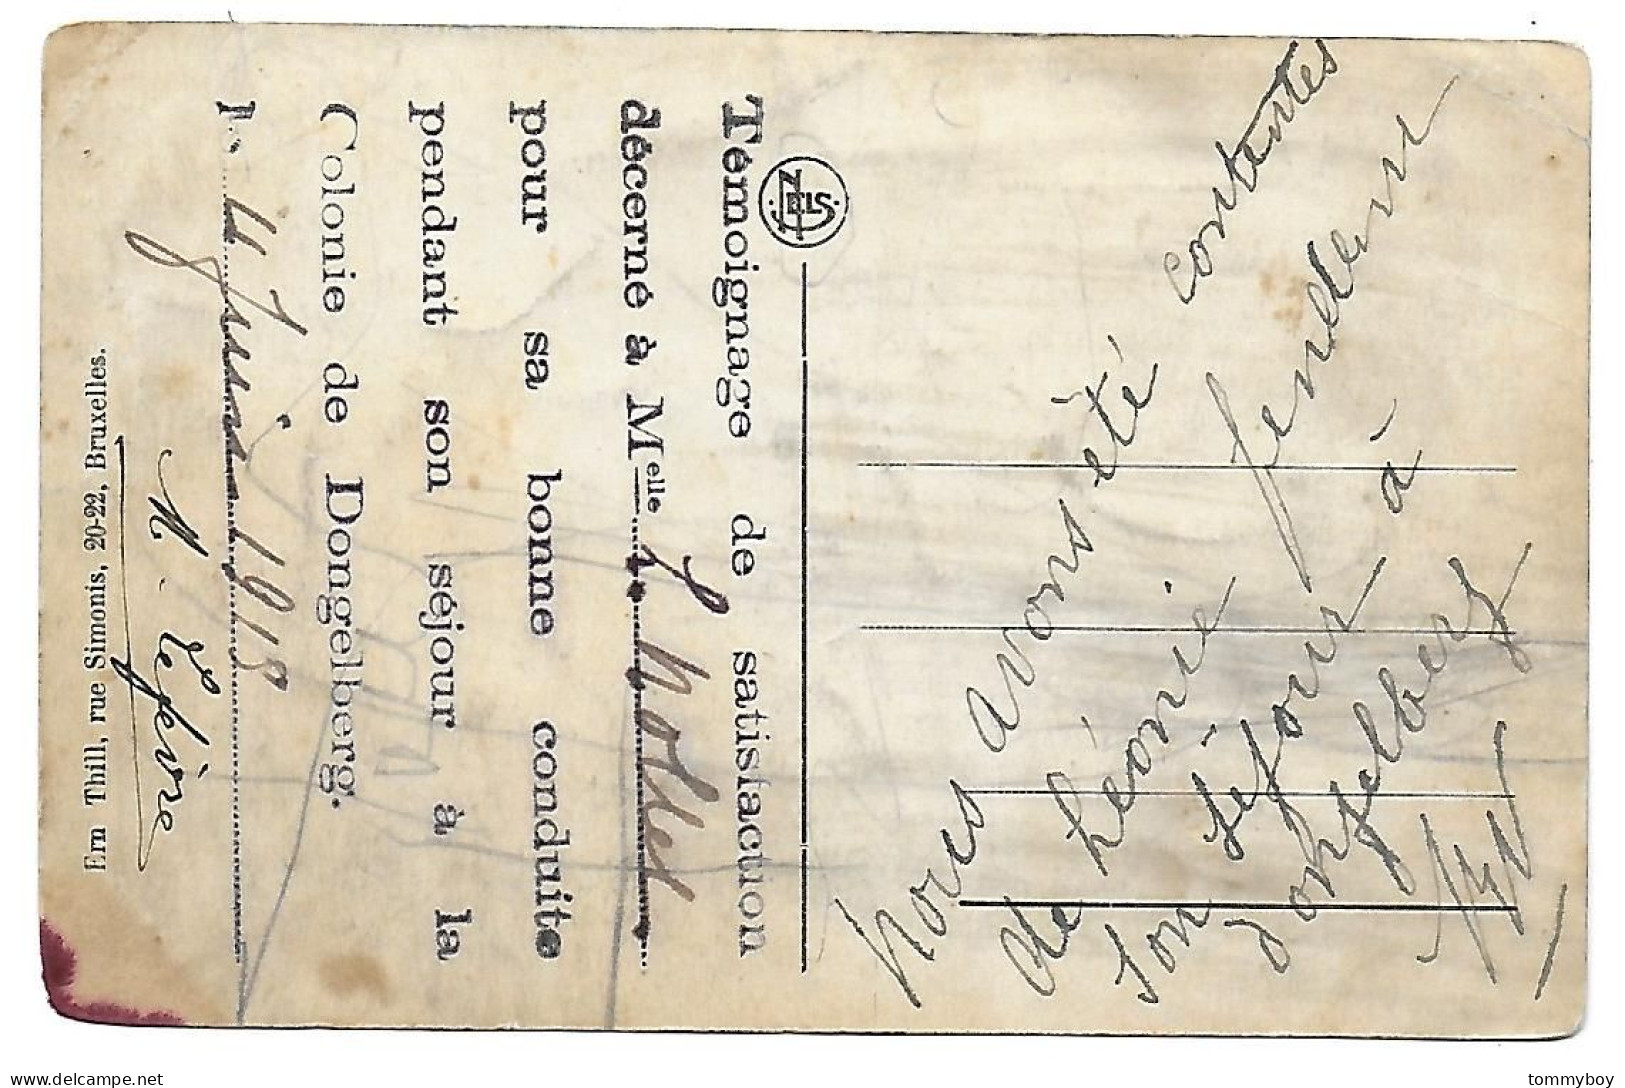 Témoignage de satisfaction
décerné à Melle L. Nolles
pour sa bonne conduite
pendant son séjour à la
Colonie de Dongelberg.
Le 4 Juin 1918
M. Lefèvre
Ern Thill, rue Simonis, 20-22, Bruxelles.
NELS
Nous avons été contentes
de Léonie pendant
son séjour à
Dongelberg
delcampe.net
tommyboy